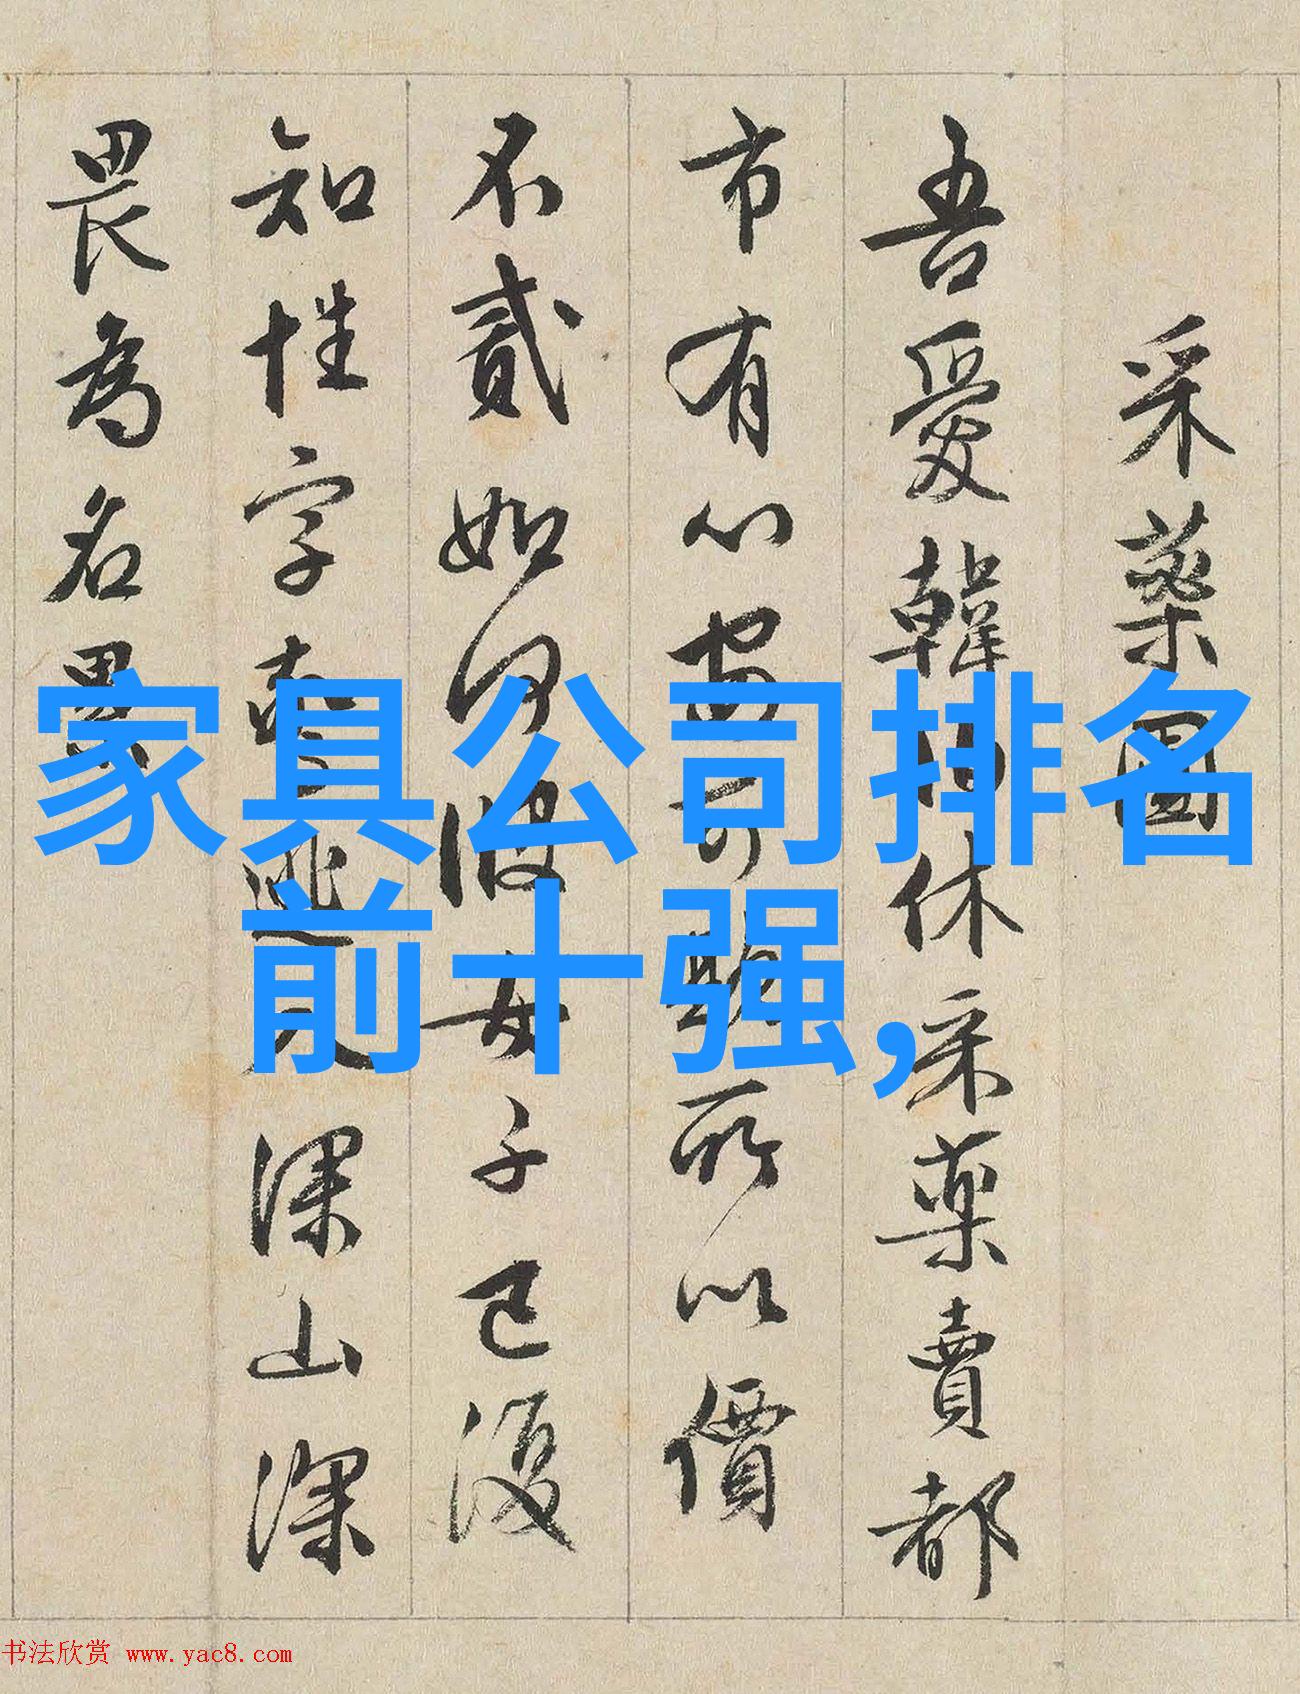 采藥圖
吾愛韓伯休采藥賣都
市有心安可欺所以價
不貳如何彼女子已復
知性字逃入深山深
畏為名累
家具公司排名
前十强,
书法欣赏 www.yac8.com